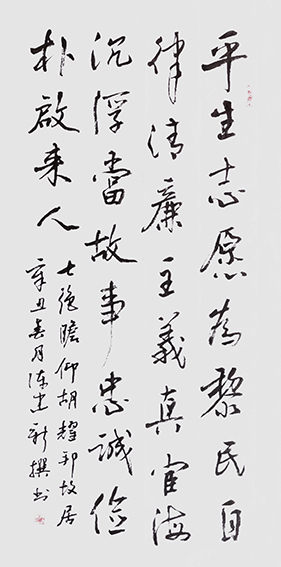 平生志愿為黎民自
律清廉主義真宦海
沉浮當故事忠誠儉
朴啟来人
七絕瞻仰胡耀邦故居
辛丑春月陈新撰书